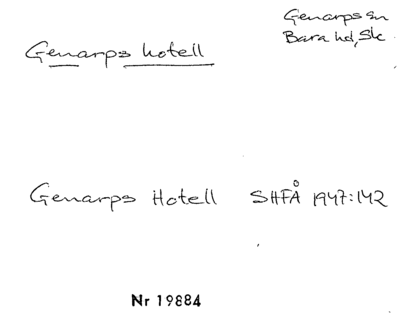 Genarps sn
Bara hd, Sk
Genarps hotell
Genarps Hotell SHFÅ 1947:142
Nr 19884